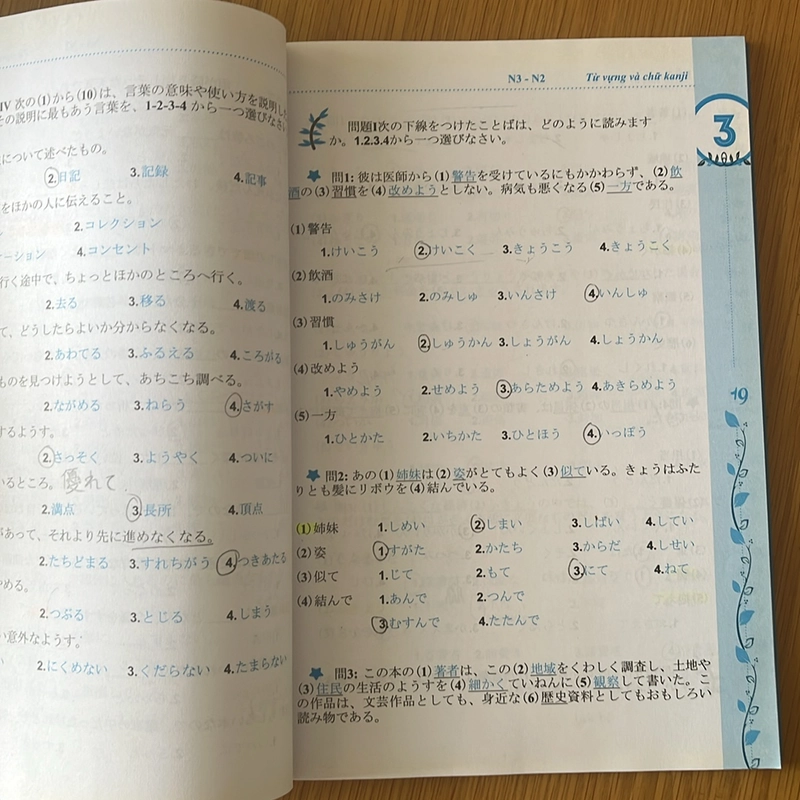 IV 次の(1)から(10)は、言葉の意味や使い方を説明し
その説明に最もあう言葉を、1-2-3-4 から一つ選びなさい
について述べたもの。
2.日記 3.記録 4.記事
をほかの人に伝えること。
2.コレクション
ーション 4.コンセント
行く途中で、ちょっとほかのところへ行く。
2.去る 3.移る 4.渡る
て、どうしたらよいか分からなくなる。
2.あわてる 3.ふるえる 4.ころがる
ものを見つけようとして、あちこち調べる。
2.ながめる 3.ねらう 4.さがす
するようす。
2.さっそく 3.ようやく 4.ついに
いるところ。優れて
2.満点 3.長所 4.頂点
があって、それより先に進めなくなる。
2.たちどまる 3.すれちがう 4.つきあたる
やめる。
2.つぶる 3.とじる 4.しまう
い意外なようす。
2.にくめない 3.くだらない 4.たまらない
N3 - N2 Từ vựng và chữ kanji
3
問題I次の下線をつけたことばは、どのように読みます
か。1.2.3.4から一つ選びなさい。
問1: 彼は医師から(1)警告を受けているにもかかわらず、(2)飲
酒の(3)習慣を(4)改めようとしない。病気も悪くなる(5)一方である。
(1)警告
1.けいこう 2.けいこく 3.きょうこう 4.きょうこく
(2)飲酒
1.のみさけ 2.のみしゅ 3.いんさけ 4.いんしゅ
(3)習慣
1.しゅうがん 2.しゅうかん 3.しょうがん 4.しょうかん
(4)改めよう
1.やめよう 2.せめよう 3.あらためよう 4.あきらめよう
(5)一方
1.ひとかた 2.いちかた 3.ひとほう 4.いっぽう
問2: あの(1)姉妹は(2)姿がとてもよく(3)似ている。きょうはふた
りとも髪にリボウを(4)結んでいる。
(1)姉妹 1.しめい 2.しまい 3.しばい 4.してい
(2)姿 1.すがた 2.かたち 3.からだ 4.しせい
(3)似て 1.じて 2.もて 3.にて 4.ねて
(4)結んで 1.あんで 2.つんで
3.むすんで 4.たたんで
問3: この本の(1)著者は、この(2)地域をくわしく調査し、土地や
(3)住民の生活のようすを(4)細かくていねんに(5)観察して書いた。こ
の作品は、文芸作品としても、身近な(6)歴史資料としてもおもしろい
読み物である。
19